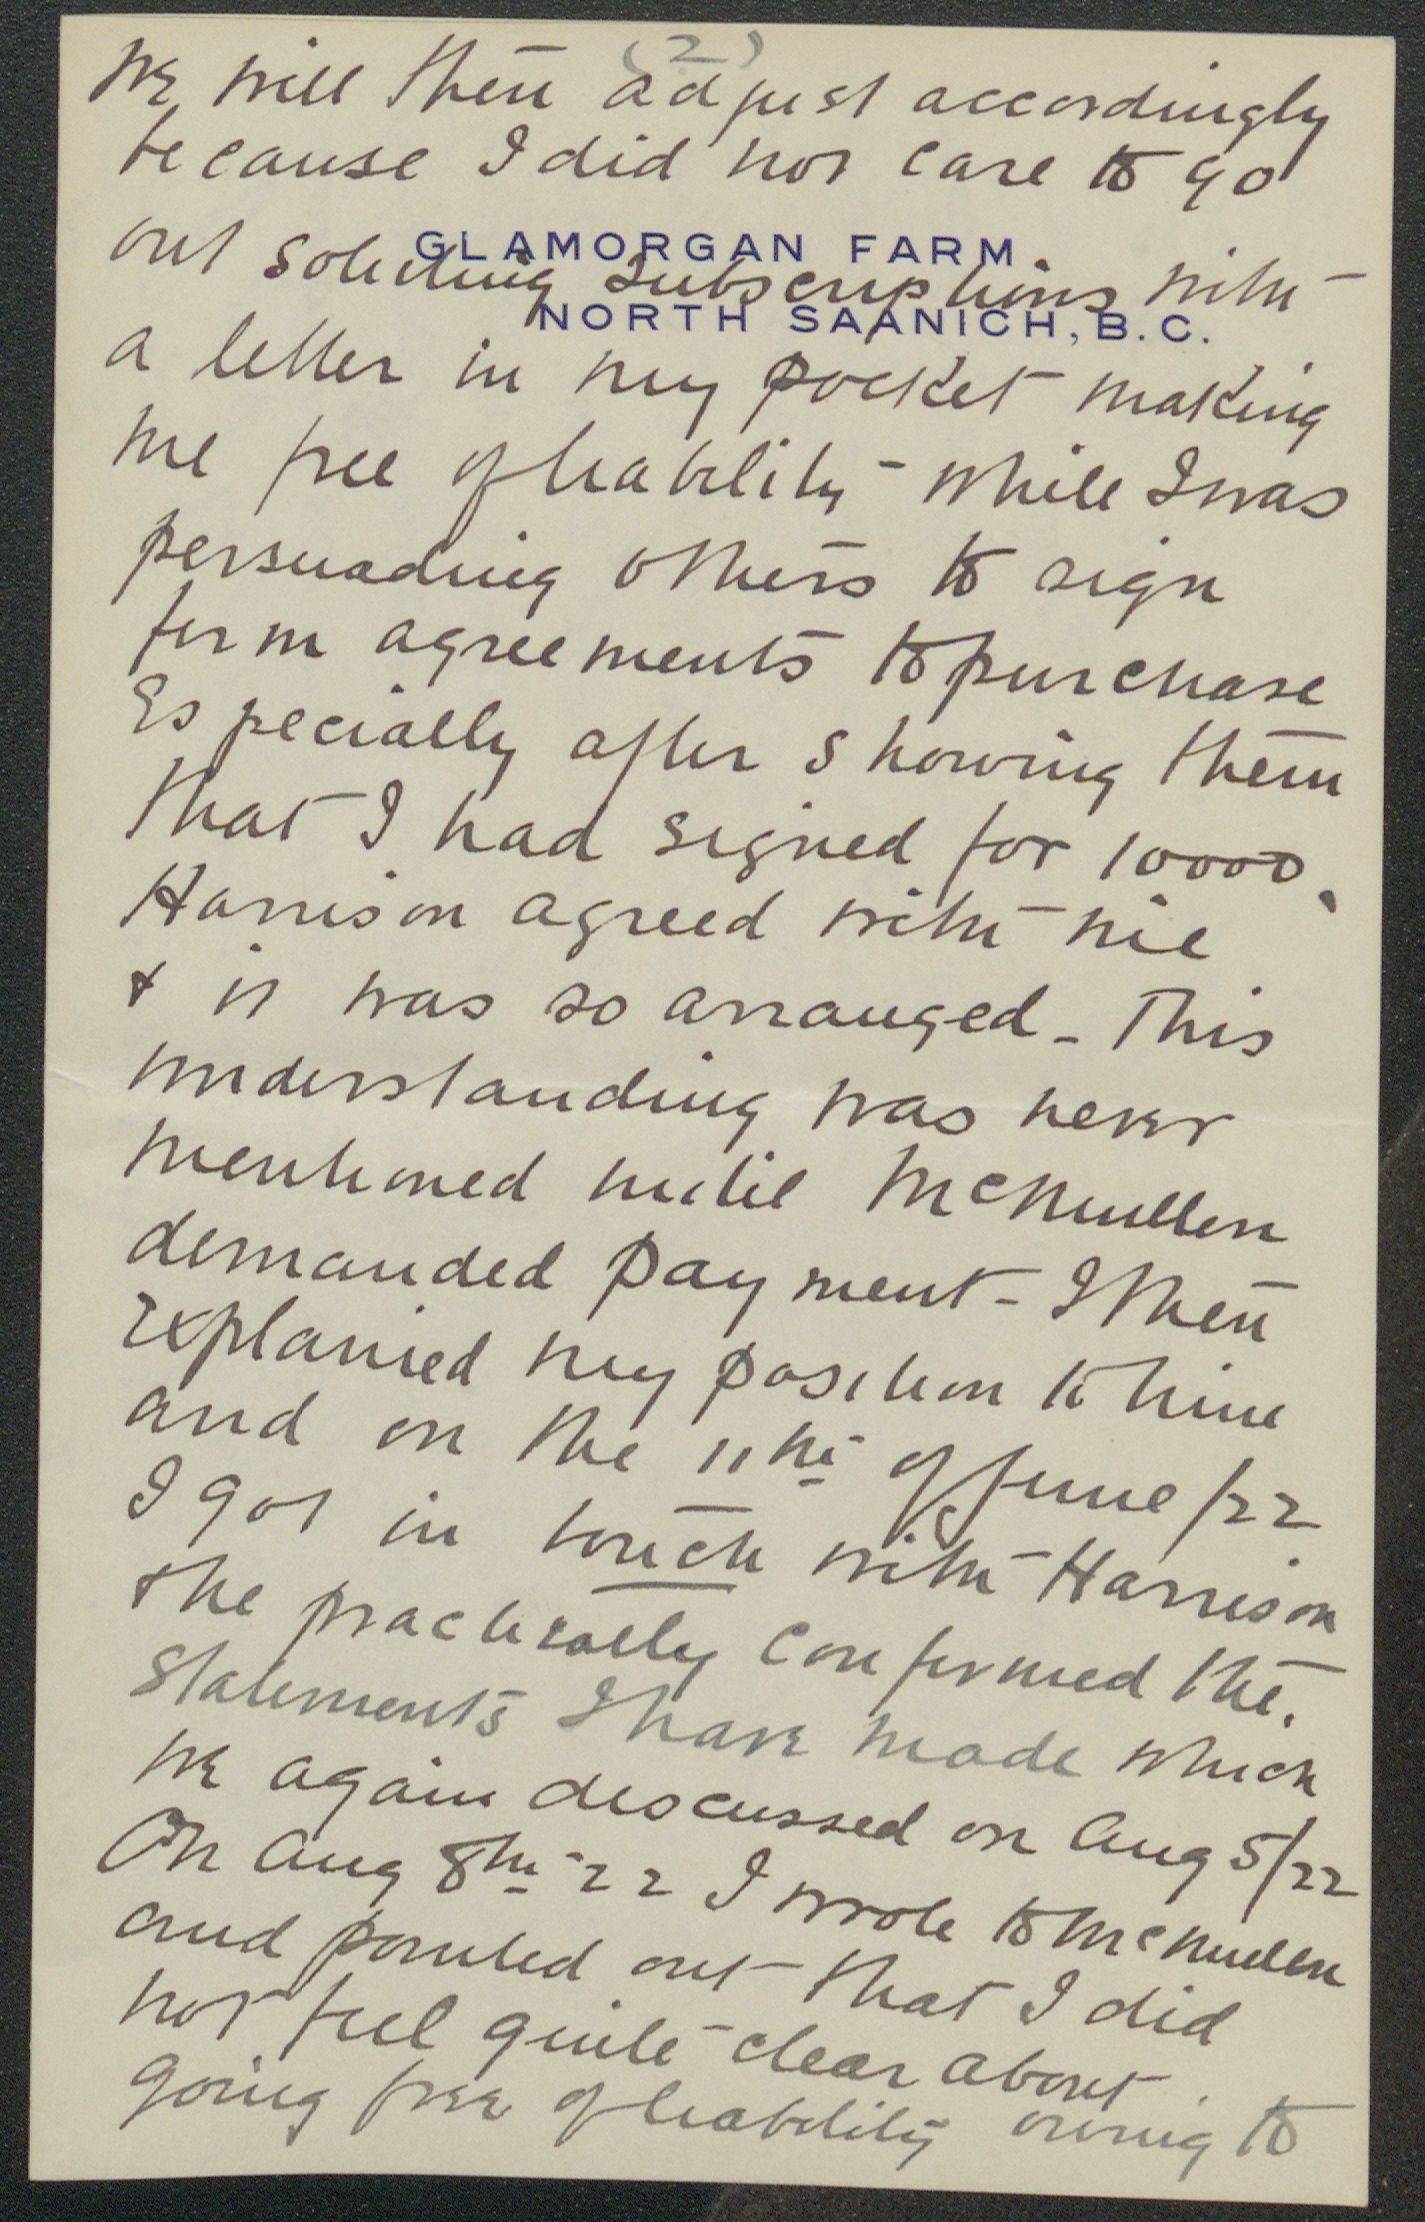 (2)
we will then adjust accordingly
because I did not care to go
GLAMORGAN FARM.
out soliciting subscriptions with
NORTH SAANICH, B.C.
a letter in my pocket making
me free of liability - while I was
persuading others to sign
firm agreements to purchase
Especially after showing them
that I had signed for 10000.
Harrison agreed with me
& it was so arranged - This
understanding was never
mentioned until McMullen
demanded payment - I then
explained my position to him
and on the 11th of June/22
I got in touch with Harrison
& he practically confirmed the
statements I have made which
we again discussed on Aug 5/22
On Aug 8th 22 I wrote to McMullen
and pointed out that I did
not feel quite clear about
going free of liability owing to